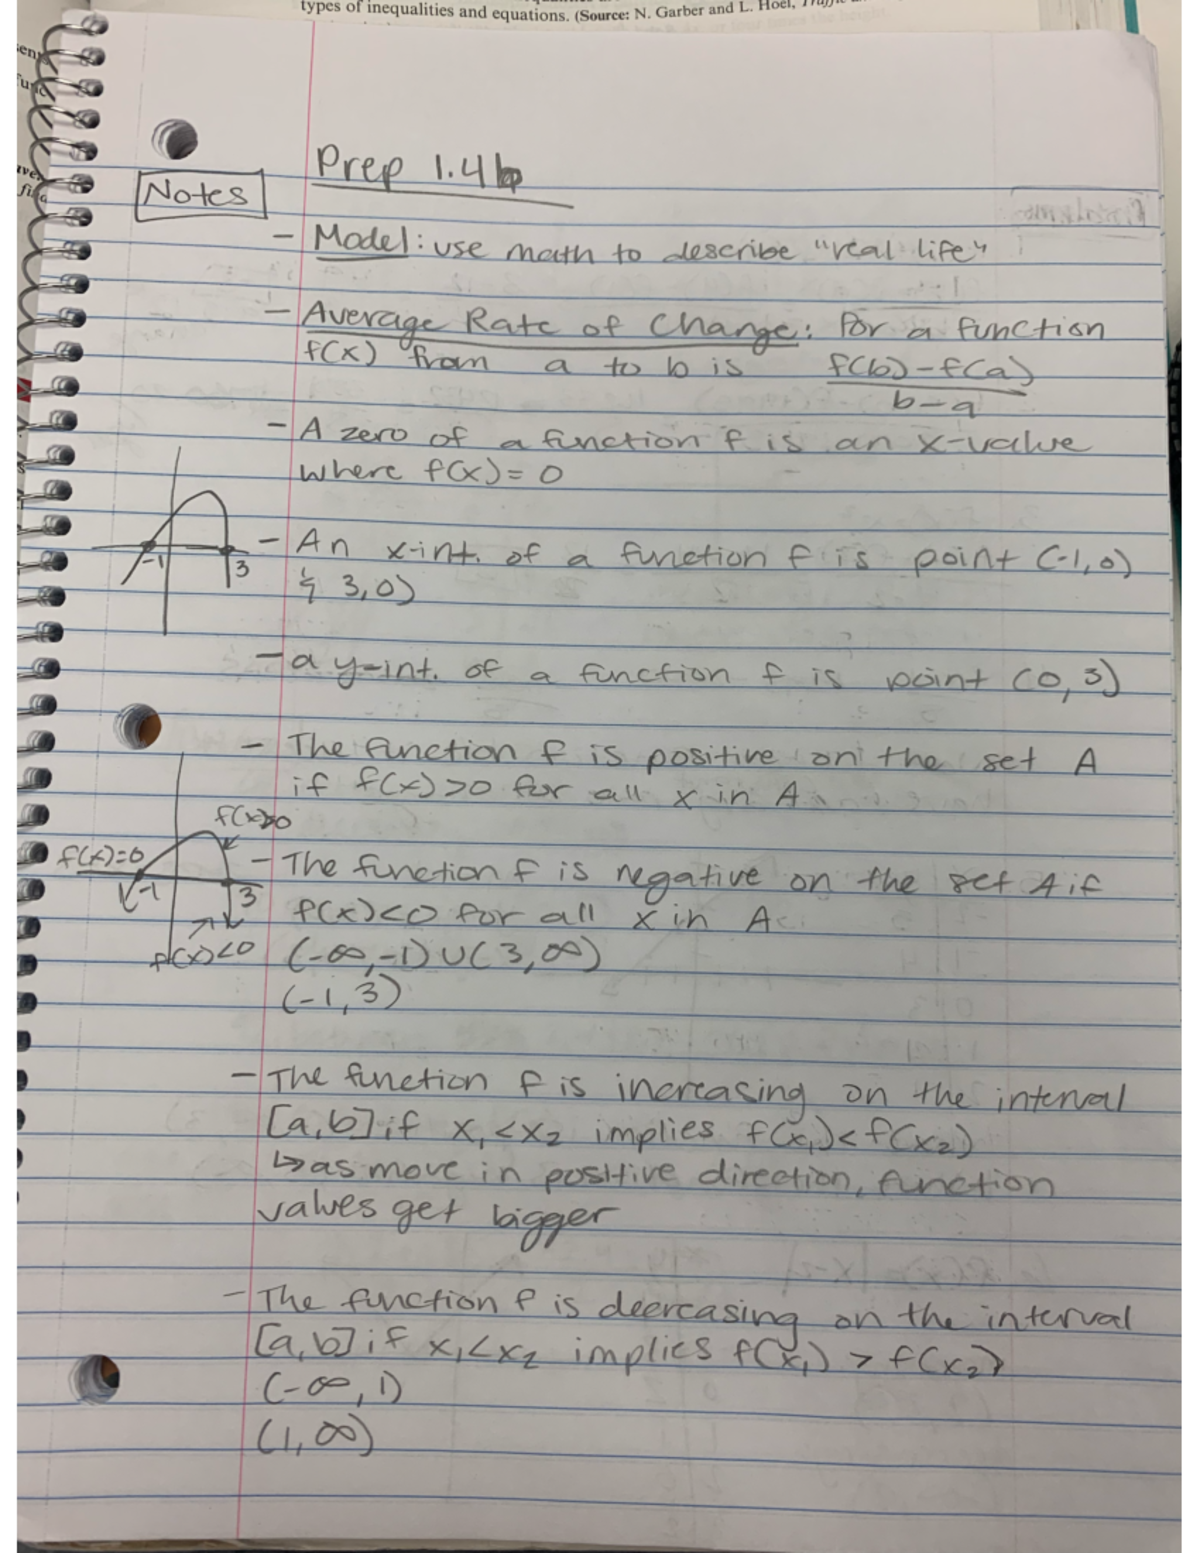 types of inequalities and equations. (Source: N. Garber and L. Hoel,
Prep 1.4b
Notes
- Model: use math to describe "real life"
- Average Rate of Change: for a function
f(x) from a to b is f(b)-f(a)
b-a
- A zero of a function f is an x-value
where f(x)=0
-1 3
- An x-int. of a function f is point (-1,0)
& 3,0)
- a y-int. of a function f is point (0,3)
- The function f is positive on the set A
if f(x)>0 for all x in A
f(x)>0
f(x)=0
-1 3
f(x)<0
- The function f is negative on the set A if
f(x)<0 for all x in A
(-∞,-1)∪(3,∞)
(-1,3)
- The function f is increasing on the interval
[a,b] if x₁<x₂ implies f(x₁)<f(x₂)
↳ as move in positive direction, function
values get bigger
- The function f is decreasing on the interval
[a,b] if x₁<x₂ implies f(x₁) > f(x₂)
(-∞,1)
(1,∞)